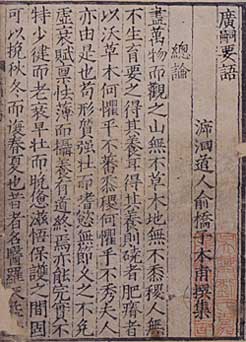 廣嗣要語
溯洄道人俞橋子木甫撰集
總論
盡萬物而觀之山無不草木地無不黍稷人無
不生育要之得其養耳得其養則磽者肥瘠者
以沃草木何懼乎不蕃黍稷何懼乎不秀夫人
亦由是也苟形質强壯而嗜慾無節久之不免
虛衰賦稟怯薄而攝養有道終焉亦能完實不
特少健而老衰早壯而晚憊滋悟保護之間因
可以挽秋冬而復春夏也昔者名醫羅天益